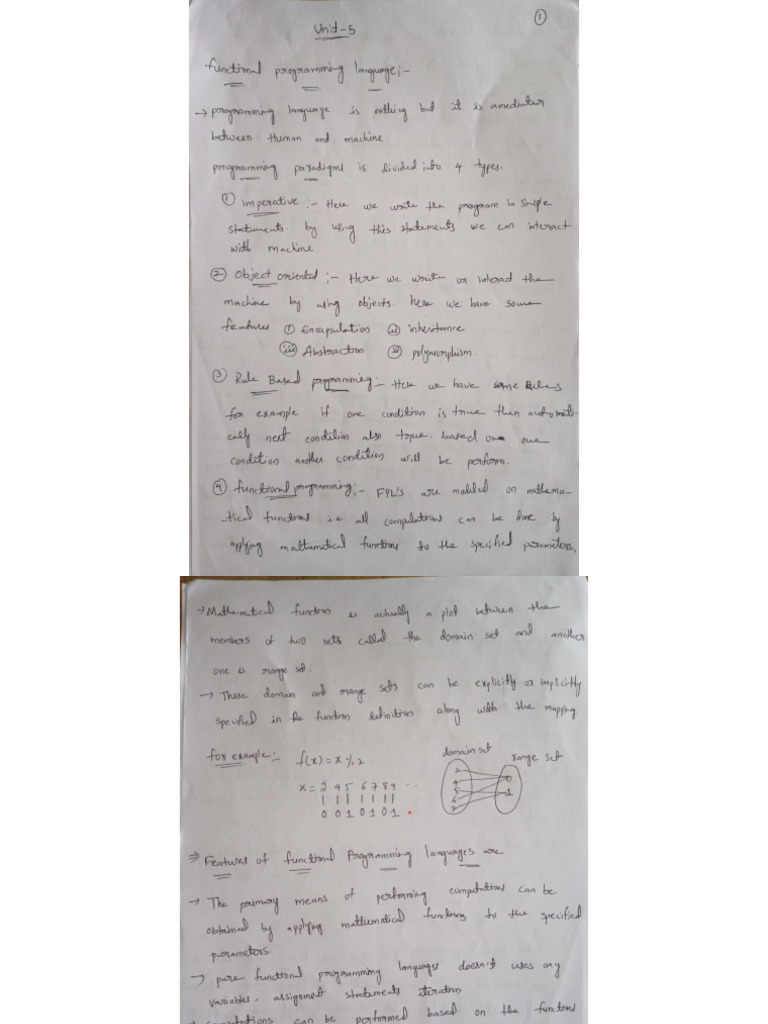 ①
Unit-5
functional programming language :-
→ programming language is nothing but it is amediater
between Human and machine.
programming paradigms is divided into 4 types.
① Imperative :- Here we write the program in simple
statements. by using this statements we can interact
with machine.
② Object oriented :- Here we write or interact the
machine by using objects here we have some
features ① Encapsulation ② inheritance
③ Abstraction ④ polymorphism.
③ Rule Based programming :- Here we have some Rules
for example if one condition is true then automati-
cally next condition also true. based on one
condition another condition will be perform.
④ functional programming :- FPL's are modeled on mathema-
-tical functions i.e all computations can be done by
applying mathematical functions to the specified parameters.
→ Mathematical function is actually a plot between the
members of two sets called the domain set and another
one is range set.
→ These domain and range sets can be explicitly or implicitly
specified in the function definition along with the mapping
for example :- f(x) = x % 2
domain set range set
x = 2 4 5 6 7 8 9 ...
0 0 1 0 1 0 1
2
4
5
6
7
0
1
⇒ Features of functional Programming languages are
→ The primary means of performing computations can be
obtained by applying mathematical functions to the specified
parameters.
→ pure functional programming languages doesn't uses any
variables, assignment statements iteration
computations can be performed based on the functions